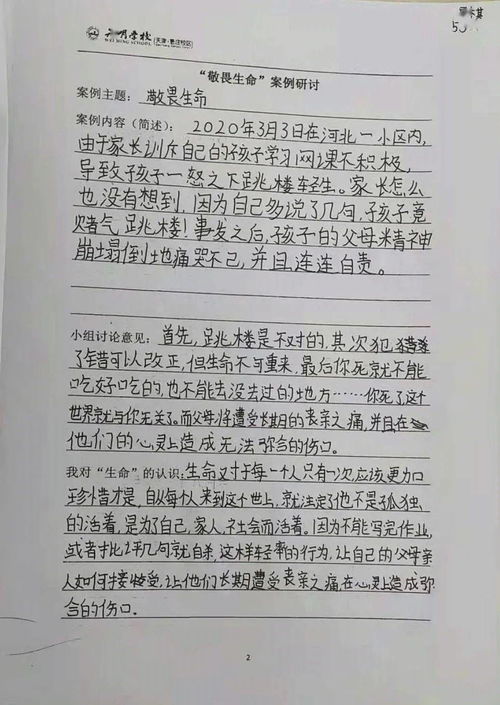 53
明学校
WEI MING SCHOOL
(天津·鲁庄校区)
“敬畏生命”案例研讨
案例主题：敬畏生命
案例内容（简述）：2020年3月3日在河北一小区内，
由于家长训斥自己的孩子学习网课不积极，
导致孩子一怒之下跳楼轻生。家长怎么
也没有想到，因为自己多说了几句，孩子竟
赌气跳楼！事发之后，孩子的父母精神
崩塌倒地痛哭不已，并且连连自责。
小组讨论意见：首先，跳楼是不对的，其次犯
了错可以改正，但生命不可重来，最后你死就不能
吃好吃的，也不能去没去过的地方……你死了，这个
世界就与你无关了。而父母将遭受长期的丧亲之痛，并且在
他们的心灵上造成无法弥合的伤口。
我对“生命”的认识：生命对于每一个人只有一次，应该更加
珍惜才是，自从每个人来到这个世上，就注定了他不是孤独
的活着，是为了自己，家人，社会而活着。因为不能写完作业，
或者才批评几句就自杀，这样轻率的行为，让自己的父母亲
人如何接受，让他们长期遭受丧亲之痛，在心灵上造成弥
合的伤口。
2